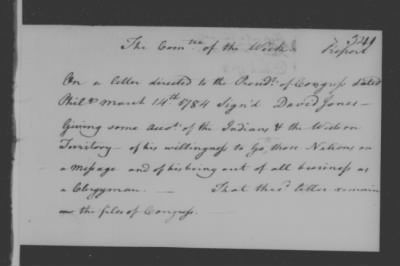 349
The Com:tee of the Week Report
On a letter directed to the Presdt. of Congress dated
Phila. March 14th 1784 Sign'd David Jones —
Giving some Acct. of the Indians & the Western
Territory — of his willingness to Go, those Nations on
a Message and of his being out of all business as
a Clergyman. — That the sd. letter remain
on the files of Congress. —